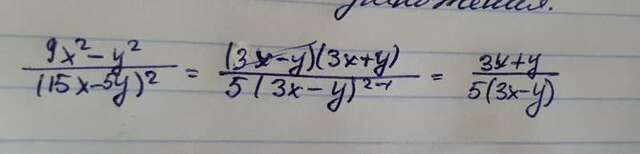 умножения.
\frac{9x^2 - y^2}{(15x - 5y)^2} = \frac{(3x - y)(3x + y)}{5(3x - y)^{2-1}} = \frac{3x + y}{5(3x - y)}